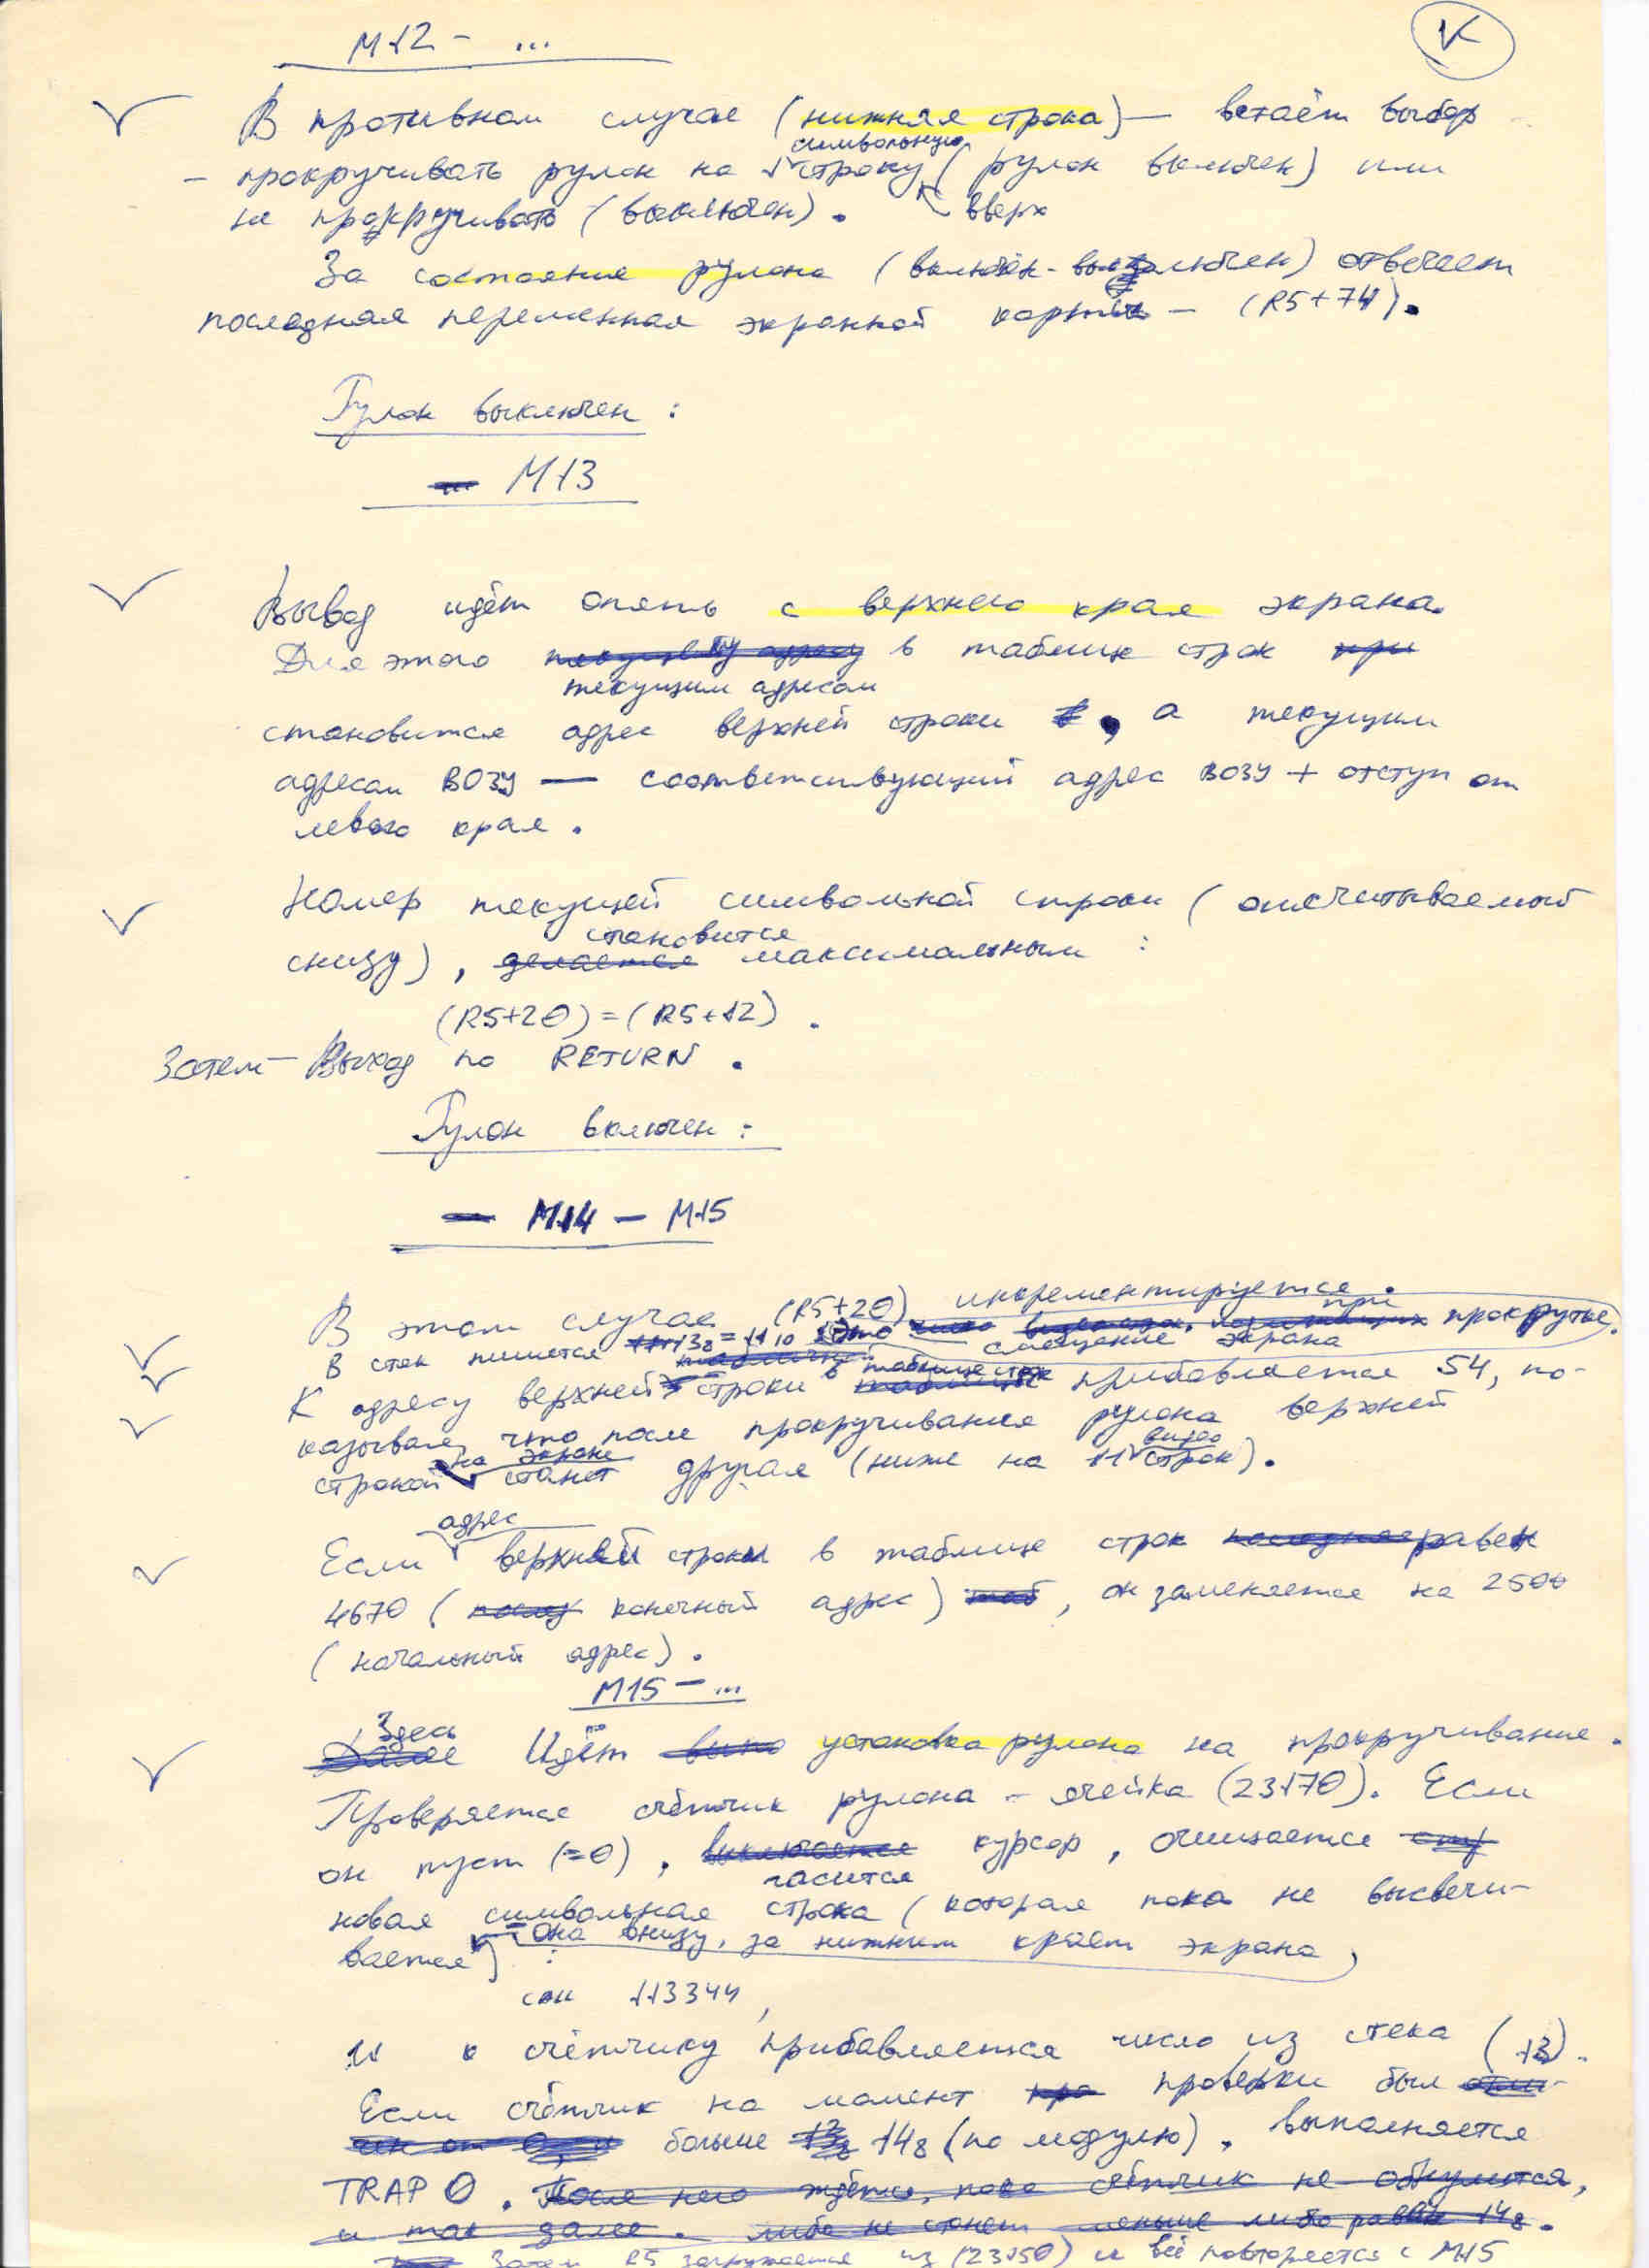 К
М12 – ...
В противном случае (нижняя строка) — встаёт выбор
символьную
– прокручивать рулон на 1 строку (рулон включен) или
не прокручивать (выключен). вверх
За состояние рулона (включён - выключен) отвечает
последняя переменная экранной карты — (R5+74).
Рулон выключен :
М13
Вывод идёт опять с верхнего края экрана.
Для этого в таблице строк
текущим адресом
становится адрес верхней строки , а текущим
адресом ВОЗУ — соответствующий адрес ВОЗУ + отступ от
левого края .
Номер текущей символьной строки (отсчитываемый
становится
снизу), делается максимальным :
(R5+20) = (R5+12) .
Затем — Выход по RETURN .
Рулон включен :
М14 — М15
В этом случае (R5+20) инкрементируется.
В стек пишется 13₈ = 11₁₀ Это смещение экрана при прокрутке.
К адресу верхней строки в таблице строк прибавляется 54, по-
казывая, что после прокручивания рулона верхней
строкой на экране станет другая (ниже на 11 видео строк).
адрес
Если верхней строки в таблице строк равен
4670 (конечный адрес), он заменяется на 2500
(начальный адрес).
М15 — ...
Здесь Идёт установка рулона на прокручивание.
Проверяется счётчик рулона – ячейка (23170). Если
он пуст (=0), выключается курсор, очищается
гасится
новая символьная строка (которая пока не высвечи-
вается – она внизу, за нижним краем экрана)
: 
сам 113344,
и к счётчику прибавляется число из стека (13).
Если счётчик на момент проверки был
больше 14₈ (по модулю), выполняется
TRAP 0. После него ждётся, пока счётчик не обнулится,
и так далее. либо не станет меньше либо равен 14₈.
Затем R5 загружается из (23150) и всё повторяется с М15